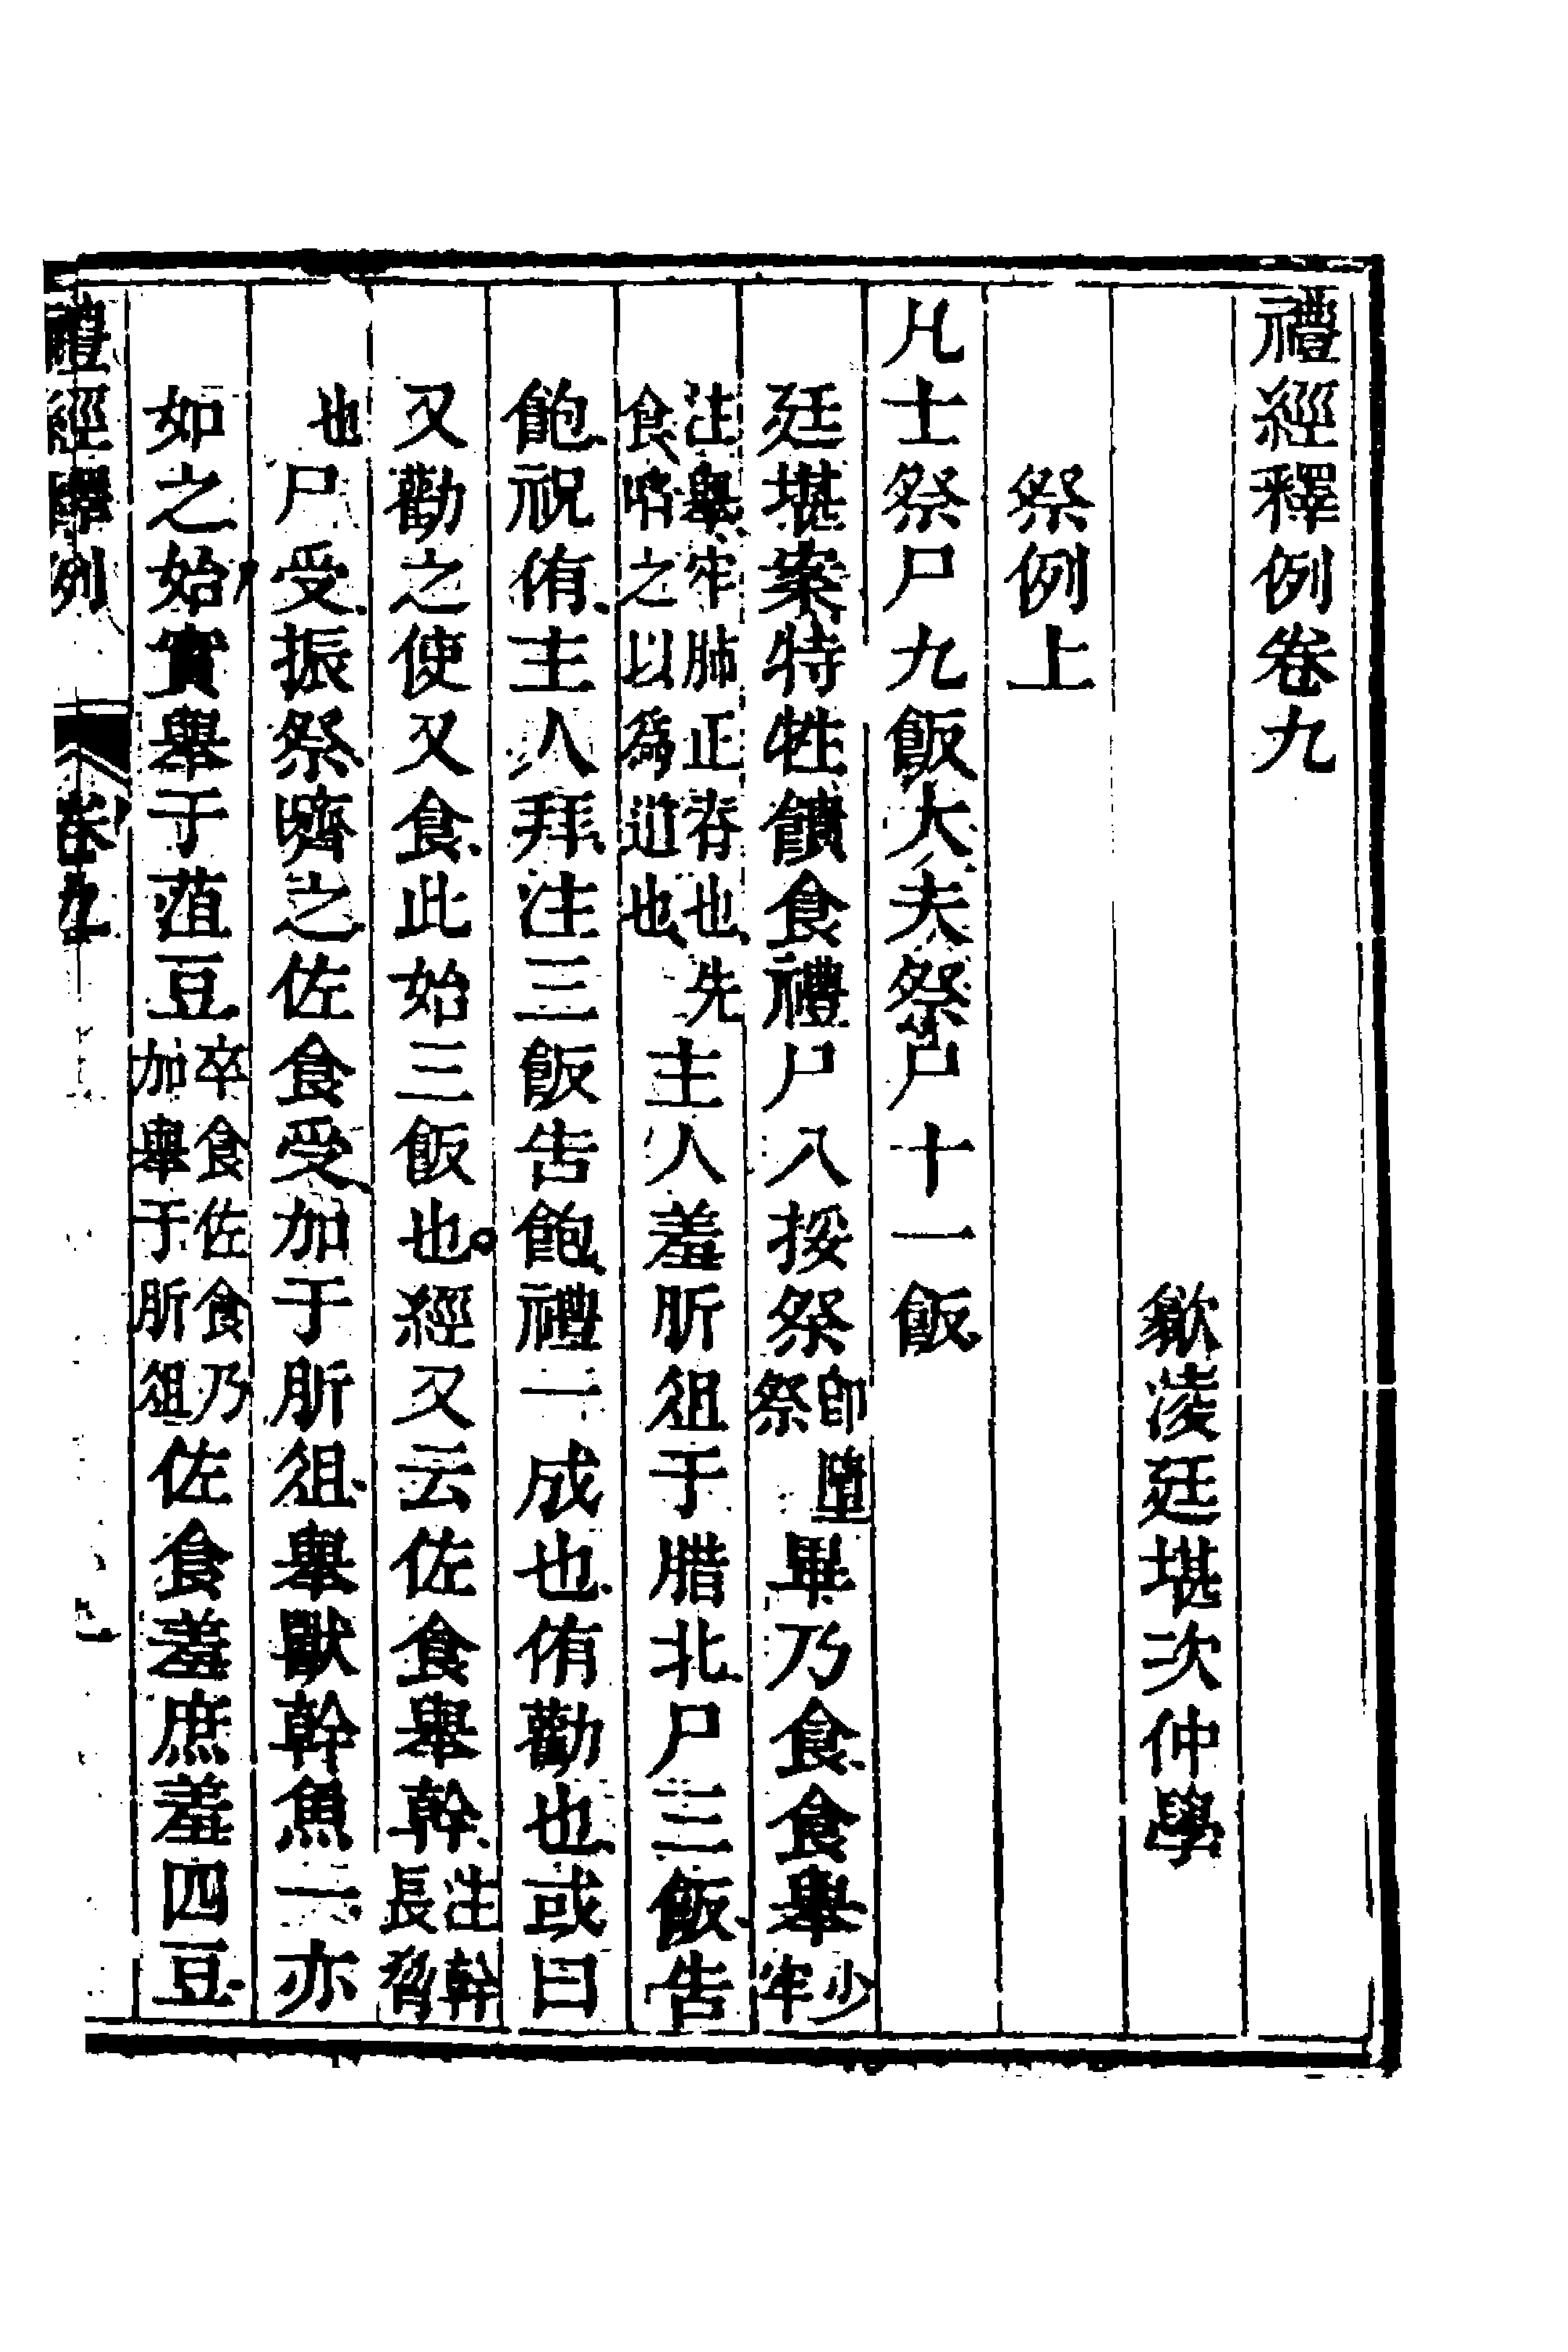 禮經釋例卷九
歙淩廷堪次仲學
祭例上
凡士祭尸九飯大夫祭尸十一飯
廷堪案特牲饋食禮尸入挼祭即墮祭畢乃食食舉少牢
注舉牢肺正脊也先食啗之以爲道也主人羞肵俎于腊北尸三飯告
飽祝侑主人拜注三飯告飽禮一成也侑勸也或曰
又勸之使又食此始三飯也經又云佐食舉幹注幹長脅
也尸受振祭嚌之佐食受加于肵俎舉獸幹魚一亦
如之始實舉于菹豆卒食佐食乃加舉于肵俎佐食羞庶羞四豆
禮經釋例 卷九